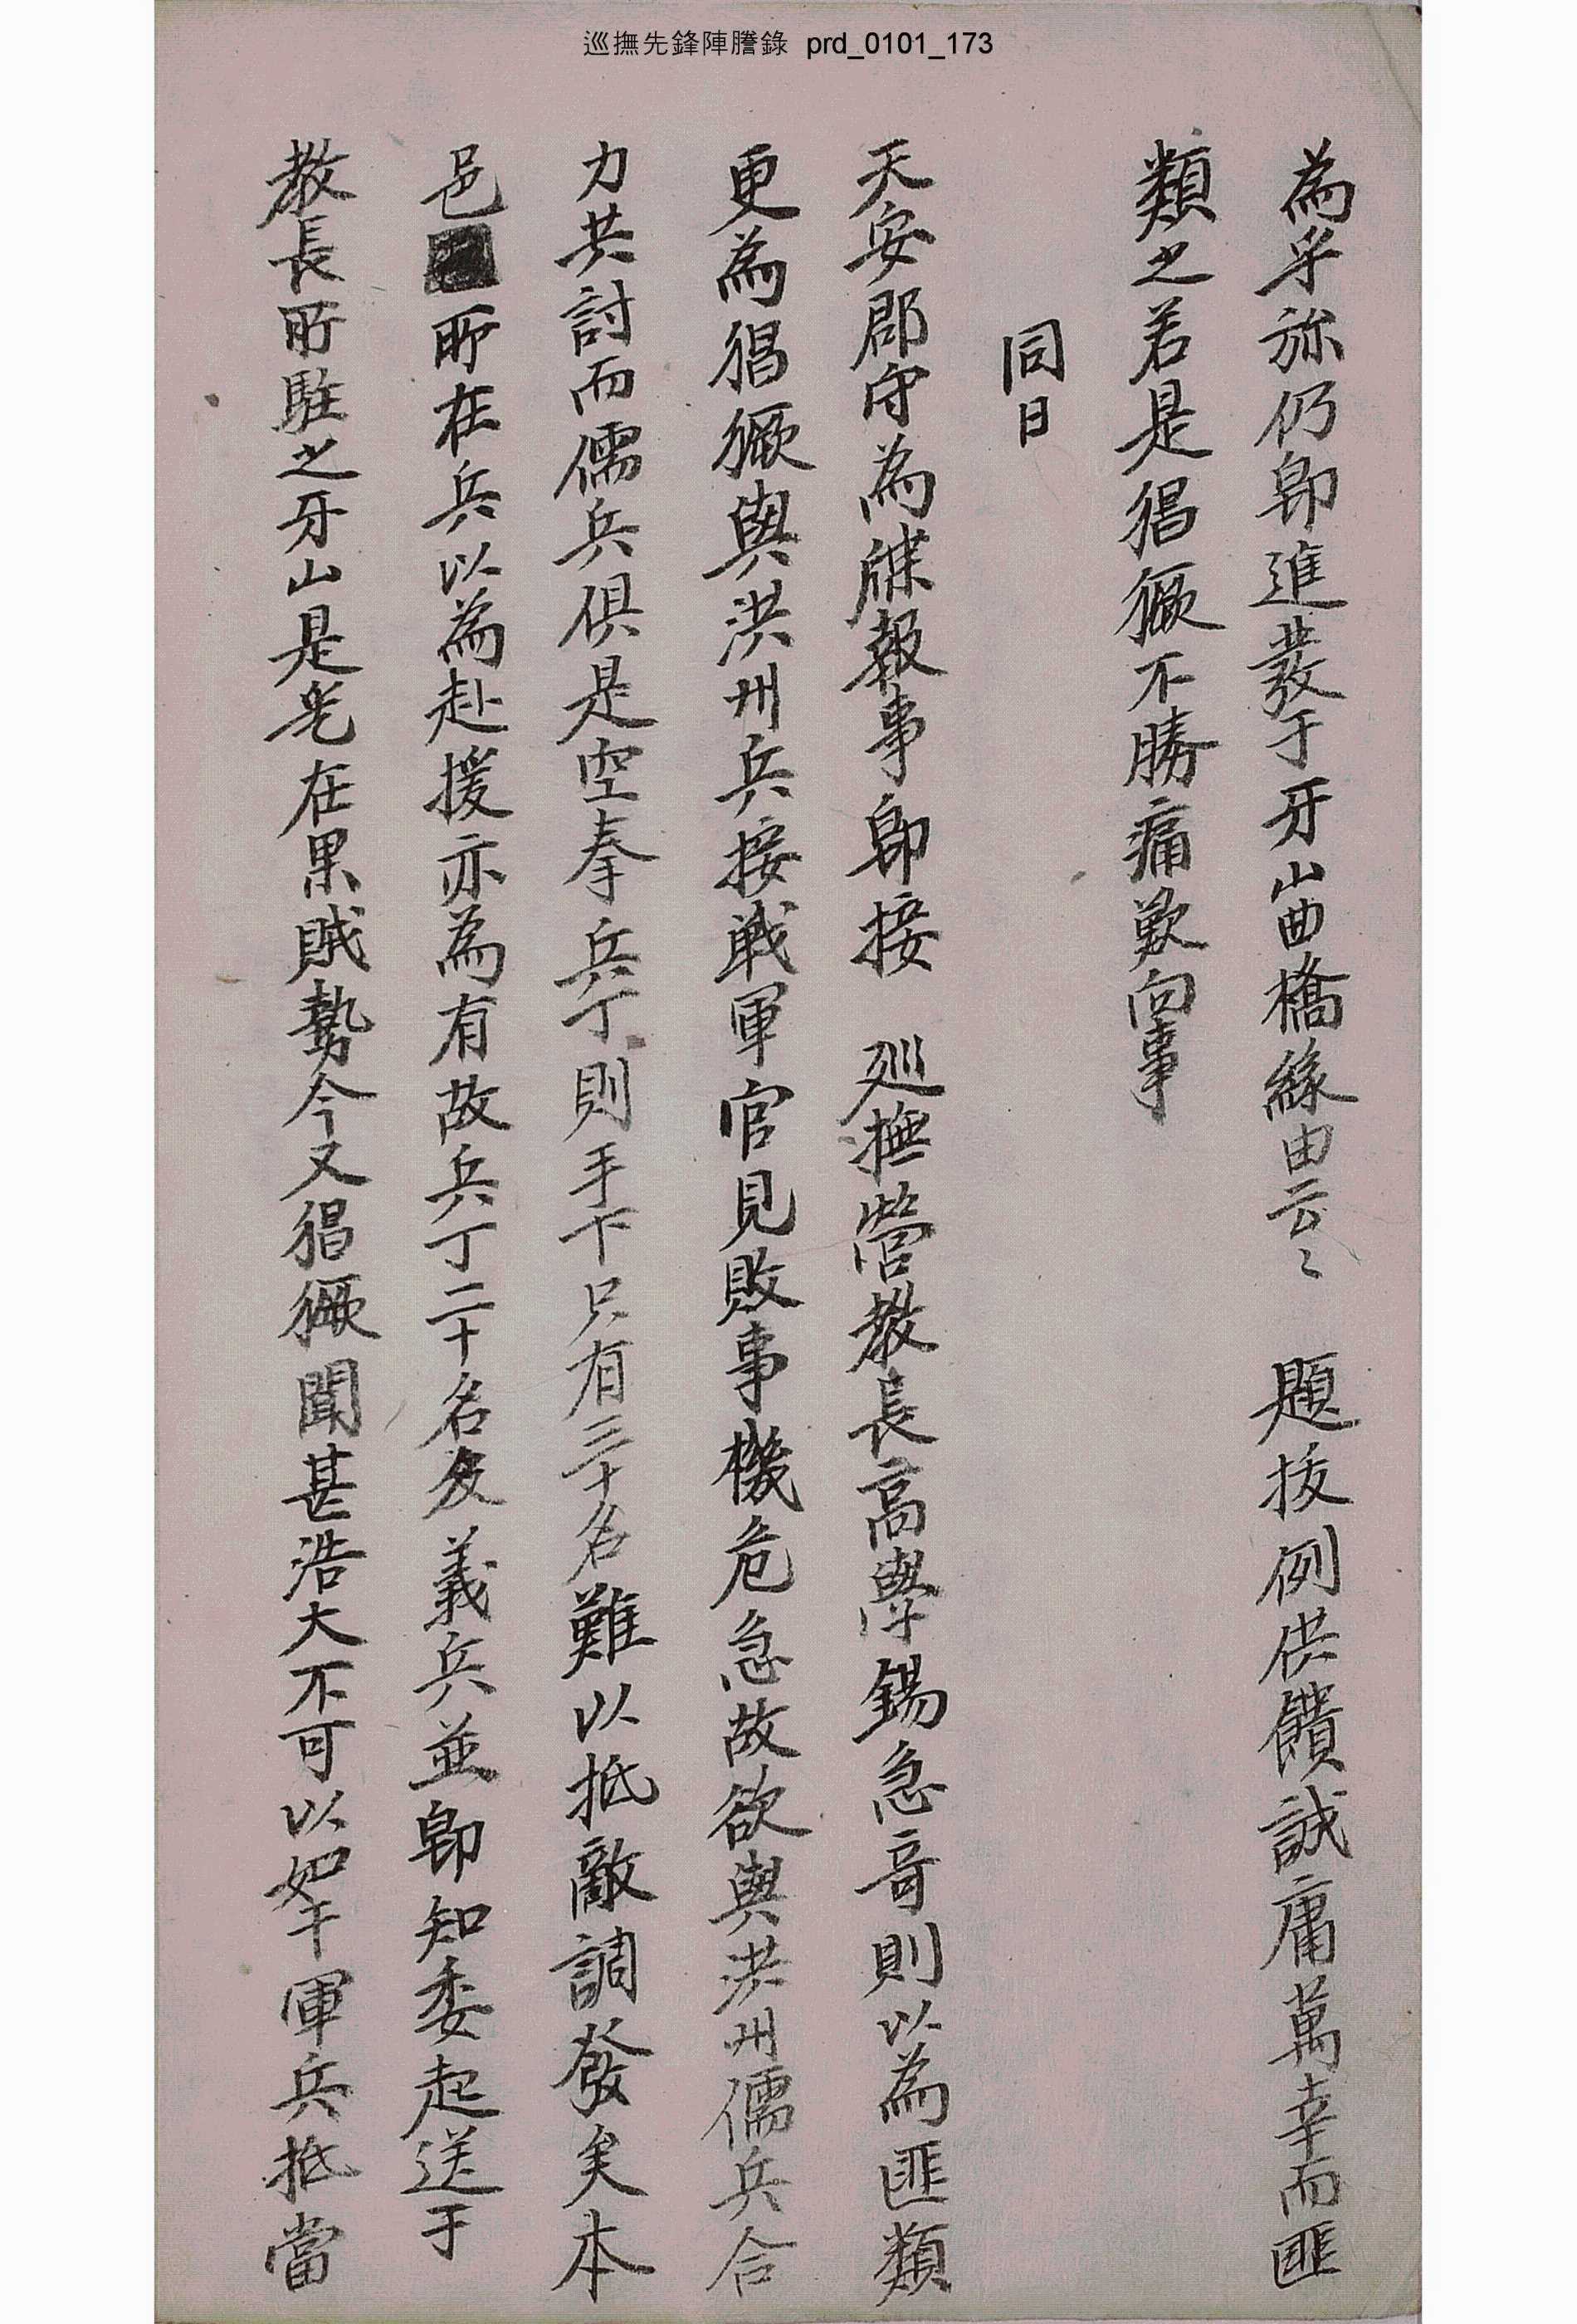 巡撫先鋒陣謄錄 prd_0101_173
為乎旀仍卽進發于牙山曲橋緣由云〻 題拔例供饋誠庸萬幸而匪
類之若是猖獗不勝痛歎向事
同日
天安郡守為牒報事卽接 廵撫營敎長高學錫急音則以為匪類
更為猖獗與洪州兵接戰軍官見敗事機危急故欲與洪州儒兵合
力共討而儒兵俱是空拳兵丁則手下只有三十名難以抵敵調發矣本
邑所在兵以為赴援亦為有故兵丁二十名及義兵並卽知委起送于
敎長所駐之牙山是乎在果賊勢今又猖獗聞甚浩大不可以如干軍兵抵當